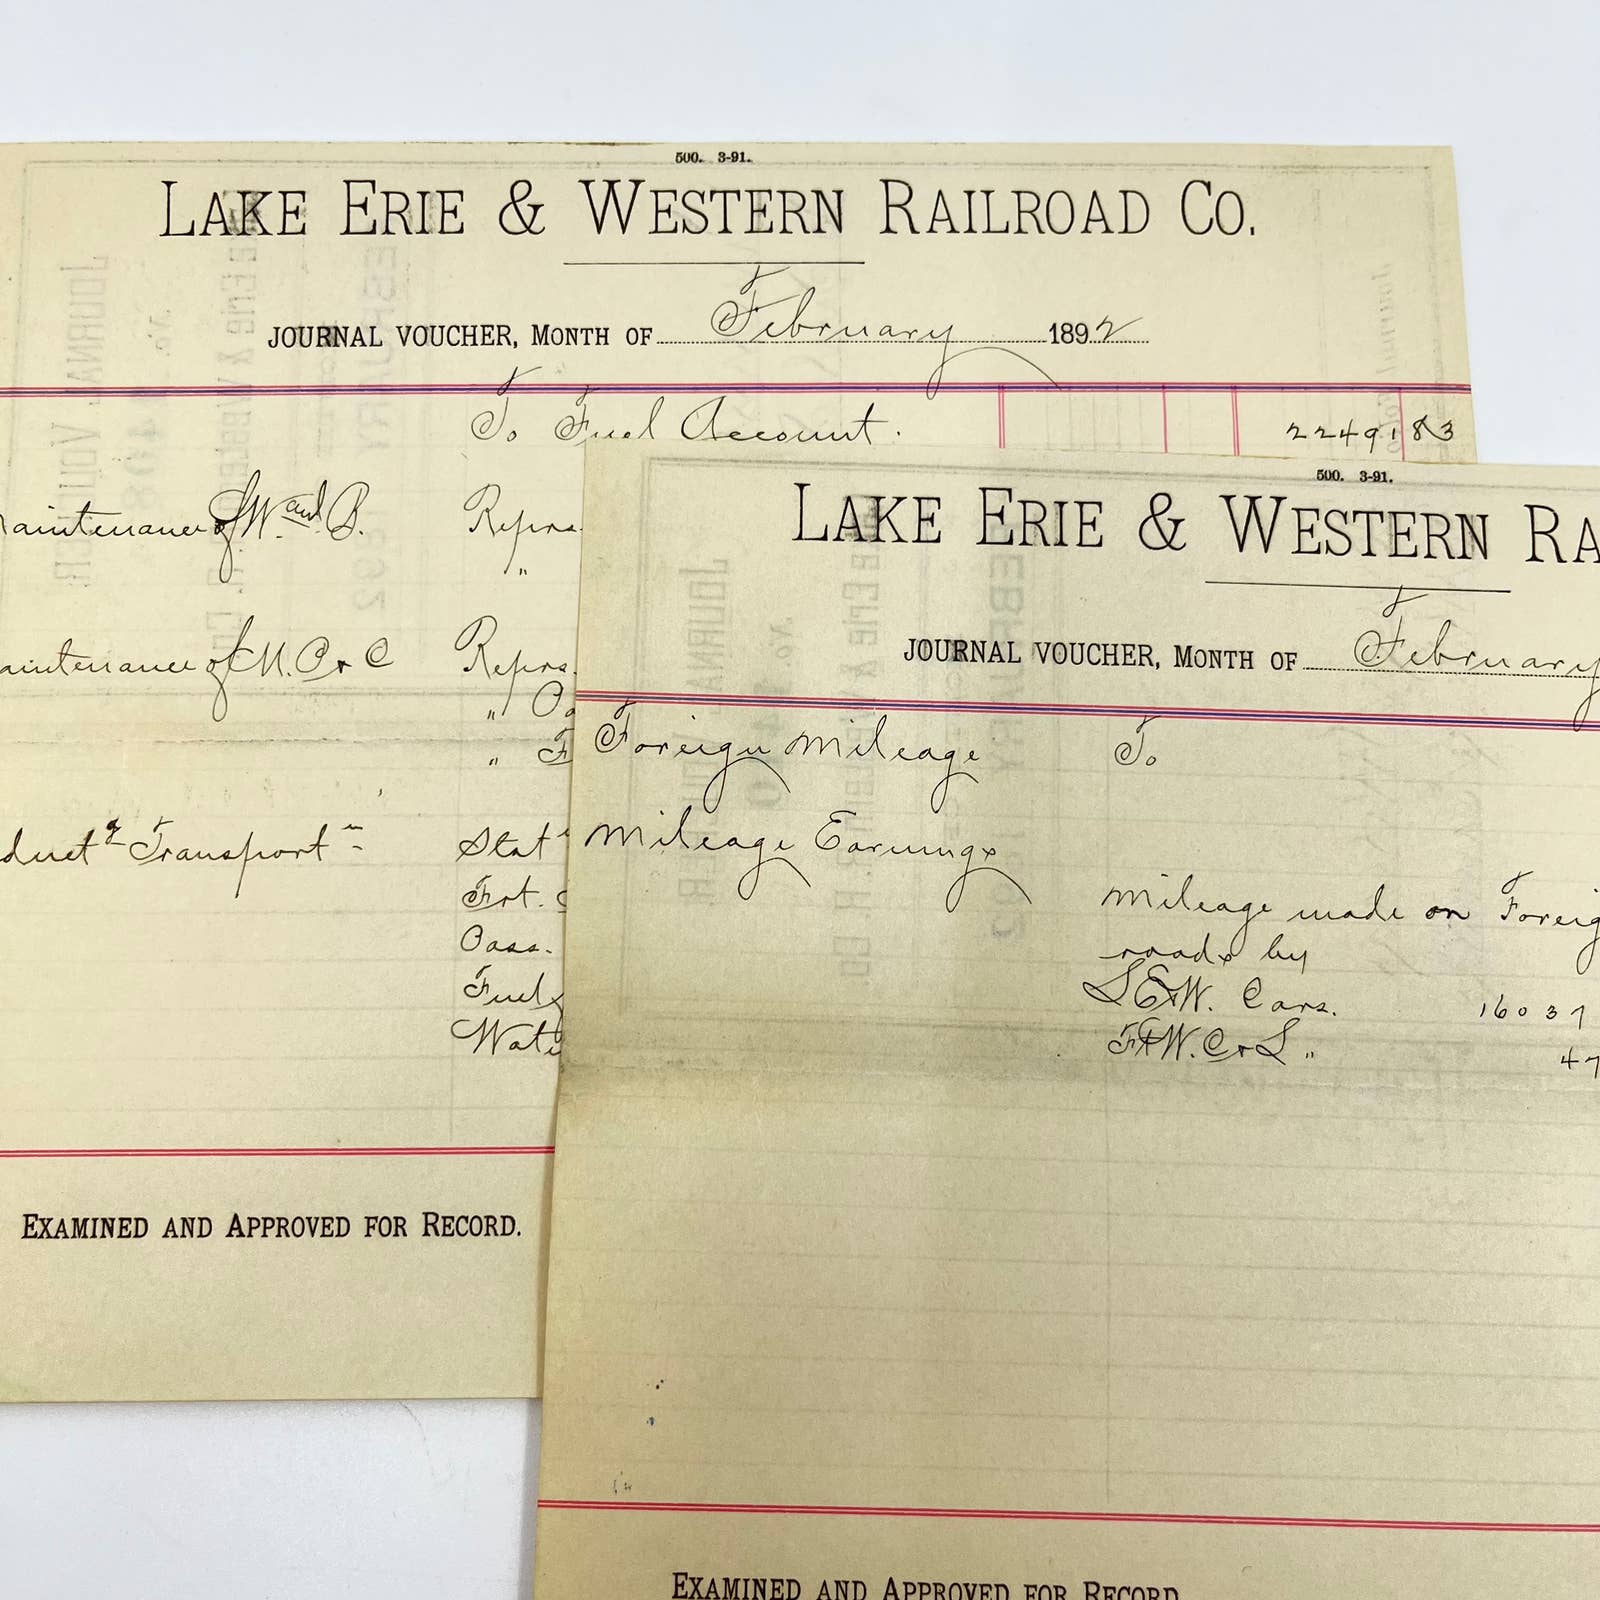 500. 3-91.
LAKE ERIE & WESTERN RAILROAD CO.
JOURNAL VOUCHER, MONTH OF February 1892
To Fuel Account. 22491 83
aintenance of W and B. Reprs
"
aintenance of M. C & C Reprs.
"
" F
duct g Transport n Stat
Frt.
Pass.
Fuel
Wate
EXAMINED AND APPROVED FOR RECORD.
500. 3-91.
LAKE ERIE & WESTERN RA
JOURNAL VOUCHER, MONTH OF February
Foreign Mileage To
Mileage Earnings
Mileage made on Foreig
roads by
L E & W. Cars. 16037
Ft W. C & L " 47
EXAMINED AND APPROVED FOR RECORD